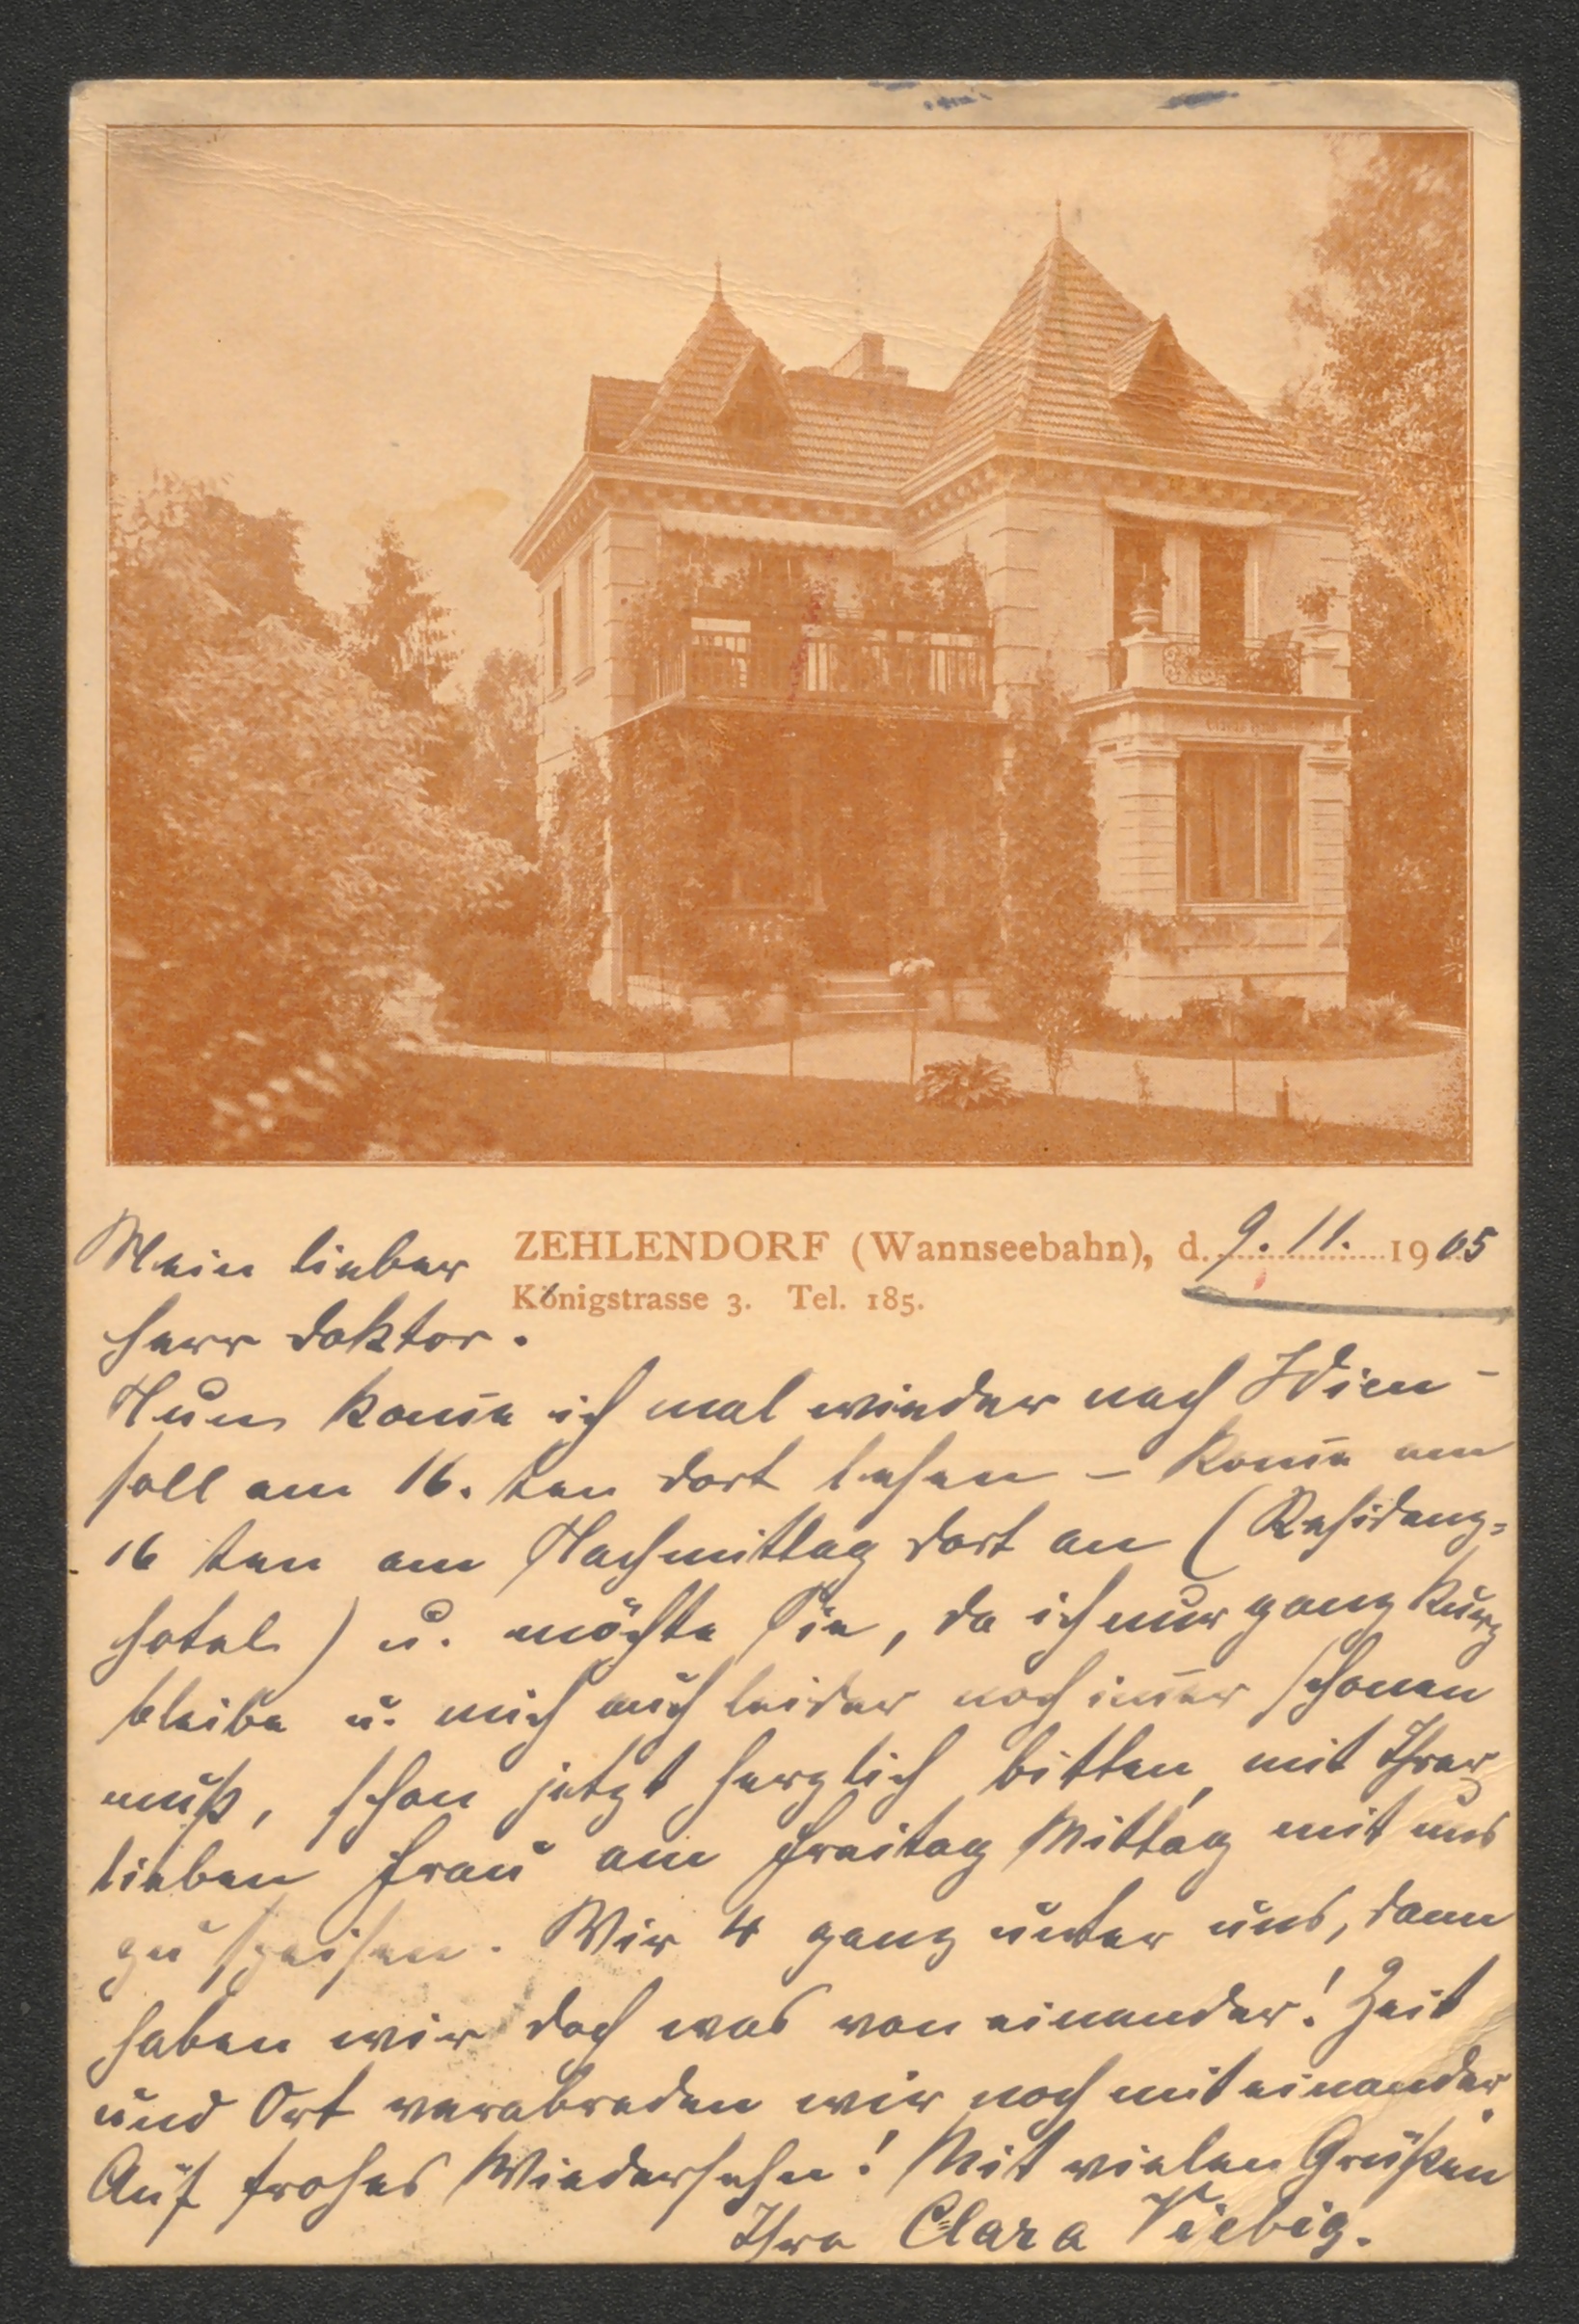 Mein lieber
ZEHLENDORF (Wannseebahn), d. 9. 11. 1905
Königstrasse 3. Tel. 185.
Herr Doktor.
Nun kom̄e ich mal wieder nach Wien –
soll am 16. ten dort lesen – kom̄e am
16 ten am Nachmittag dort an (Residenz-
hotel) u. möchte Sie, da ich nur ganz kurz
bleibe u. mich auch leider noch im̄er schonen
muß, schon jetzt herzlich bitten, mit Ihrer
lieben Frau am Freitag Mittag mit uns
zu speisen. Wir 4 ganz unter uns, dann
haben wir doch was von einander! Zeit
und Ort verabreden wir noch miteinander.
Auf frohes Wiedersehn! Mit vielen Grüßen
Ihre Clara Viebig.